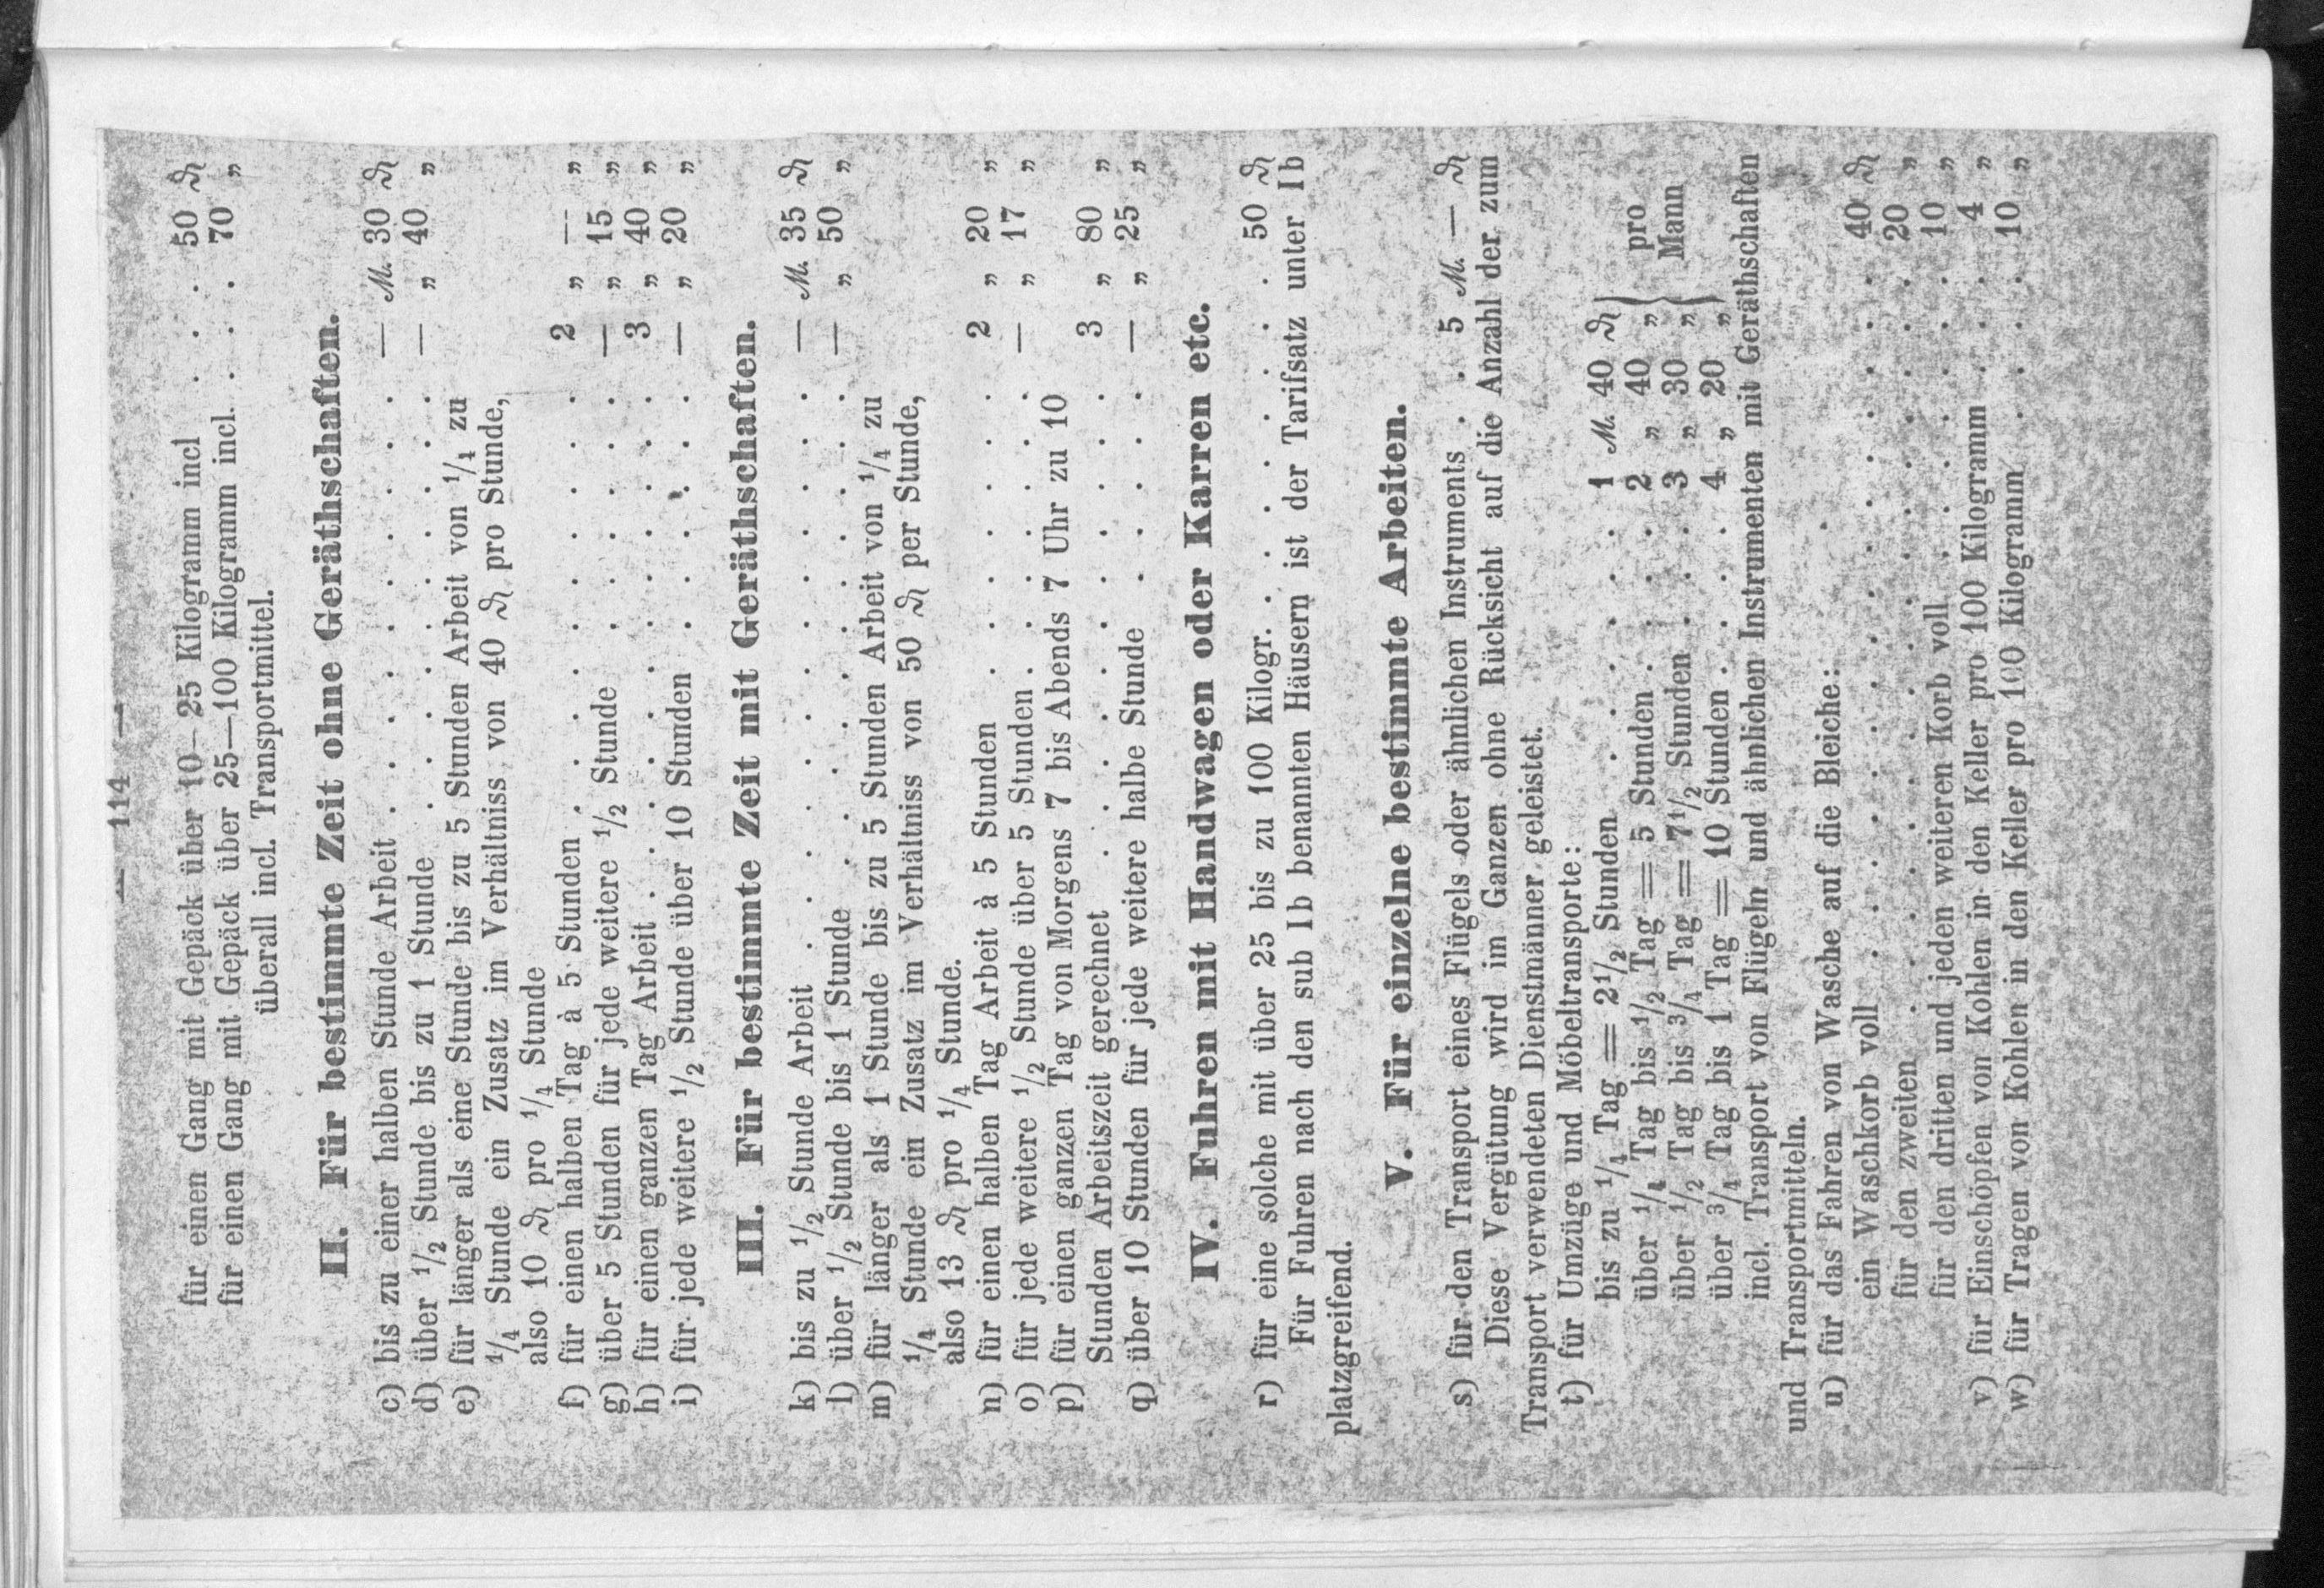 — 114 —
für einen Gang mit Gepäck über 10—25 Kilogramm incl . . . . 50 ₰
für einen Gang mit Gepäck über 25—100 Kilogramm incl. . . . . 70 „
überall incl. Transportmittel.
II. Für bestimmte Zeit ohne Geräthschaften.
c) bis zu einer halben Stunde Arbeit . . . . . . . . — ℳ. 30 ₰
d) über 1/2 Stunde bis zu 1 Stunde . . . . . . . . — „ 40 „
e) für länger als eine Stunde bis zu 5 Stunden Arbeit von 1/4 zu
1/4 Stunde ein Zusatz im Verhältniss von 40 ₰ pro Stunde,
also 10 ₰ pro 1/4 Stunde
f) für einen halben Tag à 5 Stunden . . . . . . . 2 „ — „
g) über 5 Stunden für jede weitere 1/2 Stunde . . . . — „ 15 „
h) für einen ganzen Tag Arbeit . . . . . . . . . 3 „ 40 „
i) für jede weitere 1/2 Stunde über 10 Stunden . . . . — „ 20 „
III. Für bestimmte Zeit mit Geräthschaften.
k) bis zu 1/2 Stunde Arbeit . . . . . . . . . . — ℳ. 35 ₰
l) über 1/2 Stunde bis 1 Stunde . . . . . . . . — „ 50 „
m) für länger als 1 Stunde bis zu 5 Stunden Arbeit von 1/4 zu
1/4 Stunde ein Zusatz im Verhältniss von 50 ₰ per Stunde,
also 13 ₰ pro 1/4 Stunde.
n) für einen halben Tag Arbeit à 5 Stunden . . . . . 2 „ 20 „
o) für jede weitere 1/2 Stunde über 5 Stunden . . . . — „ 17 „
p) für einen ganzen Tag von Morgens 7 bis Abends 7 Uhr zu 10
Stunden Arbeitszeit gerechnet . . . . . . . . 3 „ 80 „
q) über 10 Stunden für jede weitere halbe Stunde . . . — „ 25 „
IV. Fuhren mit Handwagen oder Karren etc.
r) für eine solche mit über 25 bis zu 100 Kilogr. . . . . . . . 50 ₰
Für Fuhren nach den sub Ib benannten Häusern ist der Tarifsatz unter Ib
platzgreifend.
V. Für einzelne bestimmte Arbeiten.
s) für den Transport eines Flügels oder ähnlichen Instruments . . 5 ℳ. — ₰
Diese Vergütung wird im Ganzen ohne Rücksicht auf die Anzahl der zum
Transport verwendeten Dienstmänner geleistet.
t) für Umzüge und Möbeltransporte:
bis zu 1/4 Tag = 2 1/2 Stunden . . . . . . 1 ℳ. 40 ₰
über 1/4 Tag bis 1/2 Tag = 5 Stunden . . . . 2 „ 40 „ pro
über 1/2 Tag bis 3/4 Tag = 7 1/2 Stunden . . . 3 „ 30 „ Mann
über 3/4 Tag bis 1 Tag = 10 Stunden . . . . 4 „ 20 „
incl. Transport von Flügeln und ähnlichen Instrumenten mit Geräthschaften
und Transportmitteln.
u) für das Fahren von Wasche auf die Bleiche:
ein Waschkorb voll . . . . . . . . . . . 40 ₰
für den zweiten . . . . . . . . . . . . 20 „
für den dritten und jeden weiteren Korb voll . . . . . . 10 „
v) für Einschöpfen von Kohlen in den Keller pro 100 Kilogramm . . . 4 „
w) für Tragen von Kohlen in den Keller pro 100 Kilogramm . . . . 10 „